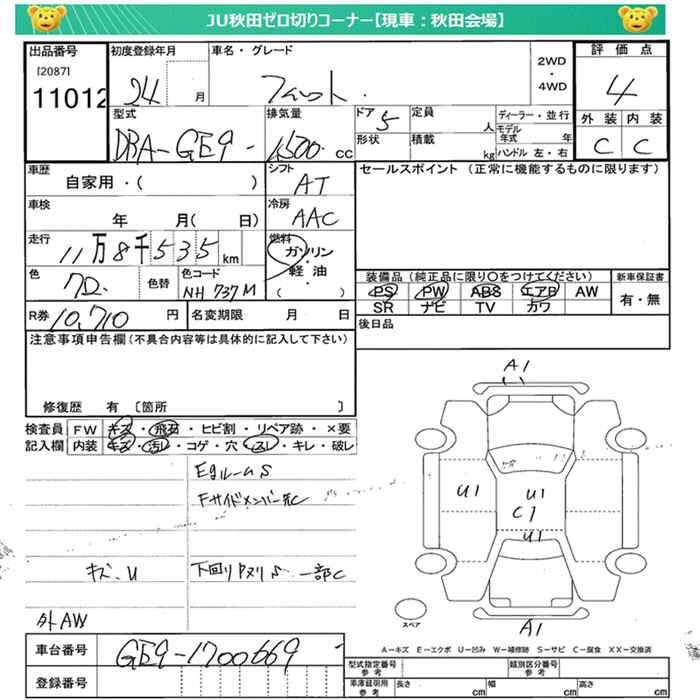 JU秋田ゼロ切りコーナー【現車：秋田会場】
出品番号
[2087]
11012
初度登録年月
24 月
車名・グレード
フィット
2WD
・
4WD
評価点
4
外装 内装
C C
型式
DBA-GE9
排気量
1500 cc
ドア 5
形状
定員 人
積載 kg
ディーラー・並行
モデル年式 年
ハンドル 左・右
車歴
自家用・( )
シフト
AT
セールスポイント (正常に機能するものに限ります)
車検
年 月( 日)
冷房
AAC
走行
11万8千535km
燃料
ガソリン
・
軽油
( )
色
色替
色コード
NH 737M
装備品 (純正品に限り〇をつけてください)
PS PW ABS エアB AW
SR ナビ TV カワ
新車保証書
有・無
R券 10,710 円
名変期限 月 日
後日品
注意事項申告欄(不具合内容等は具体的に記入して下さい)
修復歴 有 〔箇所 〕
検査員記入欄
FW キズ・飛石・ヒビ割・リペア跡・×要
内装 キズ・汚レ・コゲ・穴・スレ・キレ・破レ
EgルームS
FサイドメンバーC
キズ、U
下回りPヌリS 一部C
外AW
A1
U1
U1
C1
U1
A1
スペア
A-キズ E-エクボ U-凹み W-補修跡 S-サビ C-腐食 XX-交換済
車台番号
GE9-1700669
登録番号
型式指定番号
参考
類別区分番号
参考
車庫証明用
参考
長さ cm 幅 cm 高さ cm